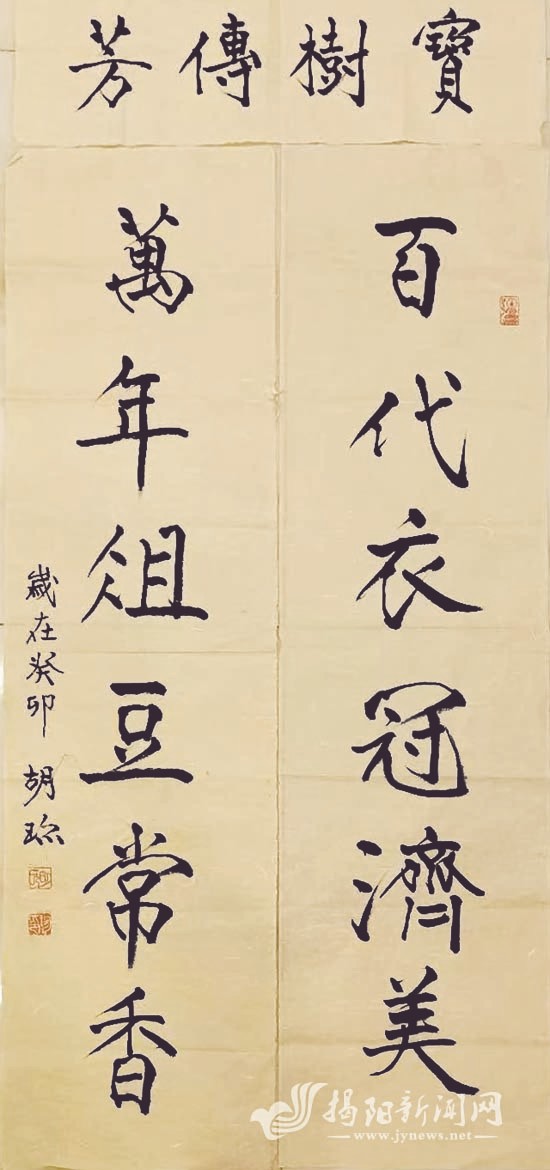 寶樹傳芳
百代衣冠濟美
萬年俎豆常香
歲在癸卯 胡
揭阳新闻网
www.jynews.net